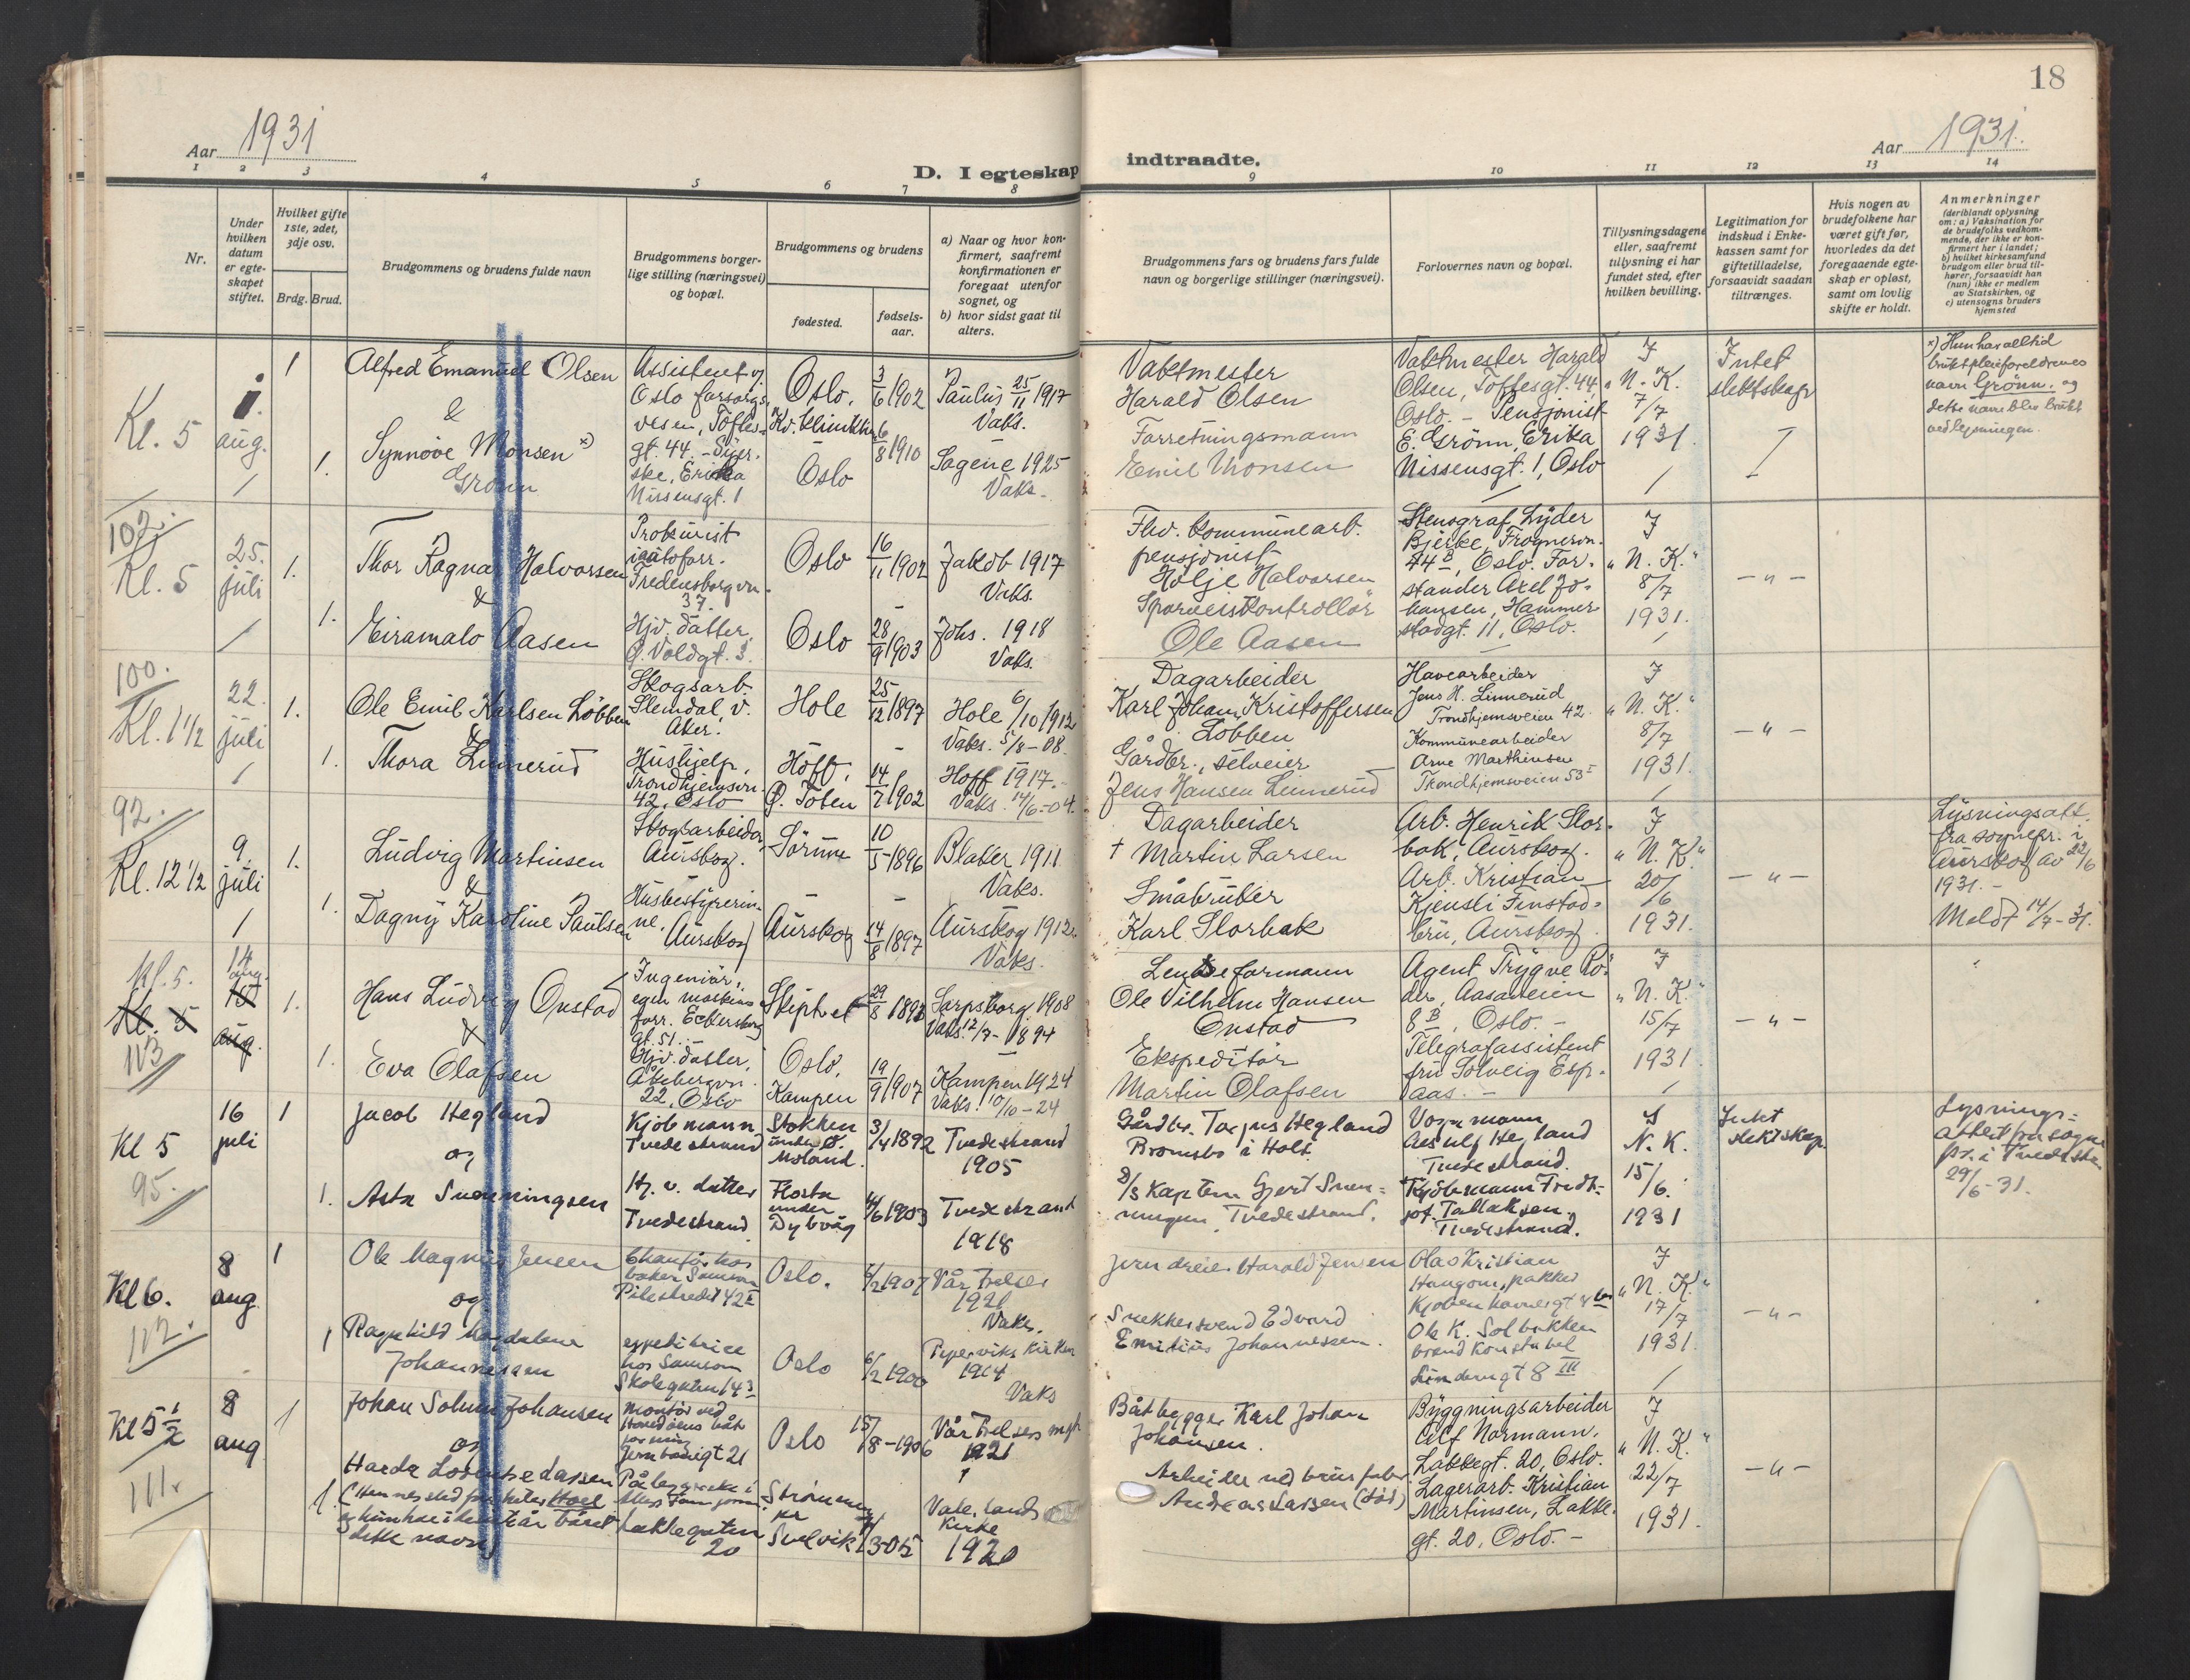 18
Aar 1931
Aar 1931.
D. I egteskap indtraadte.
1 2 3 4 5 6 7 8 9 10 11 12 13 14
Nr.
Under hvilken datum er egte-skapet stiftet.
Hvilket gifte 1ste, 2det, 3dje osv.
Brdg. Brud.
Brudgommens og brudens fulde navn
Brudgommens borger-lige stilling (næringsvei) og bopæl.
Brudgommens og brudens
fødested.
fødsels-aar.
a) Naar og hvor kon-firmert, saafremt konfirmationen er foregaat utenfor sognet, og
b) hvor sidst gaat til alters.
Brudgommens fars og brudens fars fulde navn og borgerlige stillinger (næringsvei).
Forlovernes navn og bopæl.
Tillysningsdagene eller, saafremt tillysning ei har fundet sted, efter hvilken bevilling.
Legitimation for indskud i Enke-kassen samt for giftetilladelse, forsaavidt saadan tiltrænges.
Hvis nogen av brudefolkene har været gift før, hvorledes da det foregaaende egte-skap er opløst, samt om lovlig skifte er holdt.
Anmerkninger
(deriblandt oplysning om: a) Vaksination for de brudefolks vedkom-mende, der ikke er kon-firmert her i landet; b) hvilket kirkesamfund brudgom eller brud til-hører, forsaavidt han (hun) ikke er medlem av Statskirken, og c) utensogns bruders hjemsted
Kl. 5
1. aug.
1
1.
Alfred Emanuel Olsen
&
Synnöve Monsen x)
Grönn
Assistent v/
Oslo forsorgs-
vesen, Töftes-
gt. 44. - Syer-
ske, Erika
Nissensgt. 1
Oslo.
Kv. klinikken
Oslo
3/6 1902
6/8 1910
Paulus 25/11 1917
Vaks.
Sagene 1925
Vaks.
Vaktmester
Harald Olsen
Forretningsmann
Emil Monsen
Vaktmester Harald
Olsen, Töftesgt. 44,
Oslo. - Pensjonist
E. Grönn, Erika
Nissensgt. 1, Oslo
I
"N. K."
7/7
1931.
Intet
slektskap
x) Hun har alltid
brukt pleieforeldrenes
navn Grönn, og
dette navn blev brukt
ved lysningen.
102.
Kl. 5
25. juli
1.
1.
Thor Ragnar Halvorsen
&
Eiramalo Aasen
Prokurist
i autoforr.
Fredensborgvn.
37.
Hjv. datter,
Ö. Voldgt. 3.
Oslo
Oslo
16/11 1902
28/9 1903
Jakob 1917
Vaks.
Johs. 1918
Vaks.
Flv. kommunearb.
pensjonist
Hölje Halvorsen
Sporveiskontrollör
Ole Aasen
Stenograf Lyder
Bjerke, Frognervn.
44 B, Oslo. For-
stander Axel Jo-
hansen, Hammer-
stadgt. 11, Oslo.
I
"N. K."
8/7
1931.
- " -
100.
Kl. 1 1/2
22. juli
1.
1.
Ole Emil Karlsen Löbben
&
Thora Linnerud
Skogsarb.
Slemdal, V.
Aker.
Hushjelp,
Trondhjemsvn.
42, Oslo
Hole
Hoff,
Ö. Toten
25/12 1897
14/7 1902
Hole 6/10 1912
Vaks. 5/8-08.
Hoff 1917.-
Vaks. 14/6-04.
Dagarbeider
Karl Johan Kristoffersen
Löbben
Gårdbr., selveier
Jens Hansen Linnerud
Havearbeider
Jens H. Linnerud
Trondhjemsveien 42.
Kommunearbeider
Arne Marthinsen
Trondhjemsveien 53 I
I
"N. K."
8/7
1931.
- " -
92.
Kl. 12 1/2
9. juli
1.
1.
Ludvig Martinsen
&
Dagny Karoline Paulsen
Skogsarbeider,
Aurskog.
Husbestyrerin-
ne, Aurskog
Sörum
Aurskog
10/5 1896
14/8 1897
Blaker 1911
Vaks.
Aurskog 1912.
Vaks.
Dagarbeider
† Martin Larsen
Småbruker
Karl Storbak
Arb. Henrik Stor-
bak, Aurskog.
Arb. Kristian
Kjensli Finstad-
bru, Aurskog.
I
"N. K."
20/6
1931.
- " -
Lysningsatt.
fra sognepr. i
Aurskog av 22/6
1931.-
Meldt 14/7-31.
Kl. 5.
Kl. 5
14 aug.
15 aug.
113
1.
1.
Hans Ludvig Onstad
&
Eva Olafsen
Ingeniör,
egen maskin-
forr. Eckersberg
gt. 51.-
Hjv. datter,
Åkebergvn.
22, Oslo
Skiptvet
Oslo,
Kampen
29/8 1893
19/9 1907
Sarpsborg 1908
Vaks. 12/7-1894
Kampen 1924
Vaks. 10/10-24
Lenseformann
Ole Vilhelm Hansen
Onstad
Ekspeditör
Martin Olafsen
Agent Trygve Rö-
der, Aasaveien
8 B, Oslo.-
Telegrafassistent
fru Solveig Esp-
aas.-
I
"N. K."
15/7
1931.
- " -
Kl 5
95.
16 juli
1
1.
Jacob Hegland
og
Asta Svenningsen
Kjöbmann
Tvedestrand
Hj. v. datter
Tvedestrand
Stokken
under Ö.
Moland.
Flosta
under
Dybvåg
3/4 1892
1903
Tvedestrand
1905
Tvedestrand
1918
Gårdbr. Torjus Hegland
Bronsbo i Holt
Kaptein Gjert Sven-
ningsen, Tvedestrand.
Vognmann
Aasulf Hegland
Tvedestrand.
Kjöbmann Fredr.
Tallaksen,
Tvedestrand.
I
N. K.
15/6.
1931
Intet
slektskap.
Lysnings-
attest fra sogne
pr. i Tvedestr.
29/6-31.
Kl 6.
112.
8 aug.
1
1
Ole Magnus Jensen
og
Ragnhild Magdalene
Johannessen
Chauför hos
baker Samson
Pilestredet 42 II
expeditrice
hos Samson
Skolegaten 14 3
Oslo.
Oslo
1907
6/2 1900
Vår Frelser
1921
Vaks.
Piperviks Kirken
1914
Vaks
Jerndreier Harald Jensen
Snekkersvend Edvard
Emilius Johannessen.
Olaf Kristian
Haugom, pakker
Kjöbenhavnsgt 4
Ole K. Solbakken
brandkonstabel
Lindernsgt 8 III
I
"N. K."
17/7
1931.
- " -
Kl 5 1/2
111.
8 aug
1
1.
Johan Solum Johansen
og
Harda Lovinse Lassen
(Hennes sted far heter Hoel
og hun har i de siste år båret
dette navn)
Montör ved
Hovedöens båt
forening
Jernbanegt 21
Påleggerske i
Lakkegaten
20
Oslo
Strömm
pr
Svelvik
15/8-1906
Vår Frelsers mgh
1921
Vale. Lands
Kirke
1920
Båtbygger Karl Johan
Johansen.
Arbeider ved brusfabr.
Andreas Lassen (död)
Byggningsarbeider
Alf Normann,
Lakkegt. 20, Oslo.
Lagerarb. Kristian
Martinsen, Lakke-
gt. 20, Oslo.-
I
"N. K."
22/7
1931.
- " -